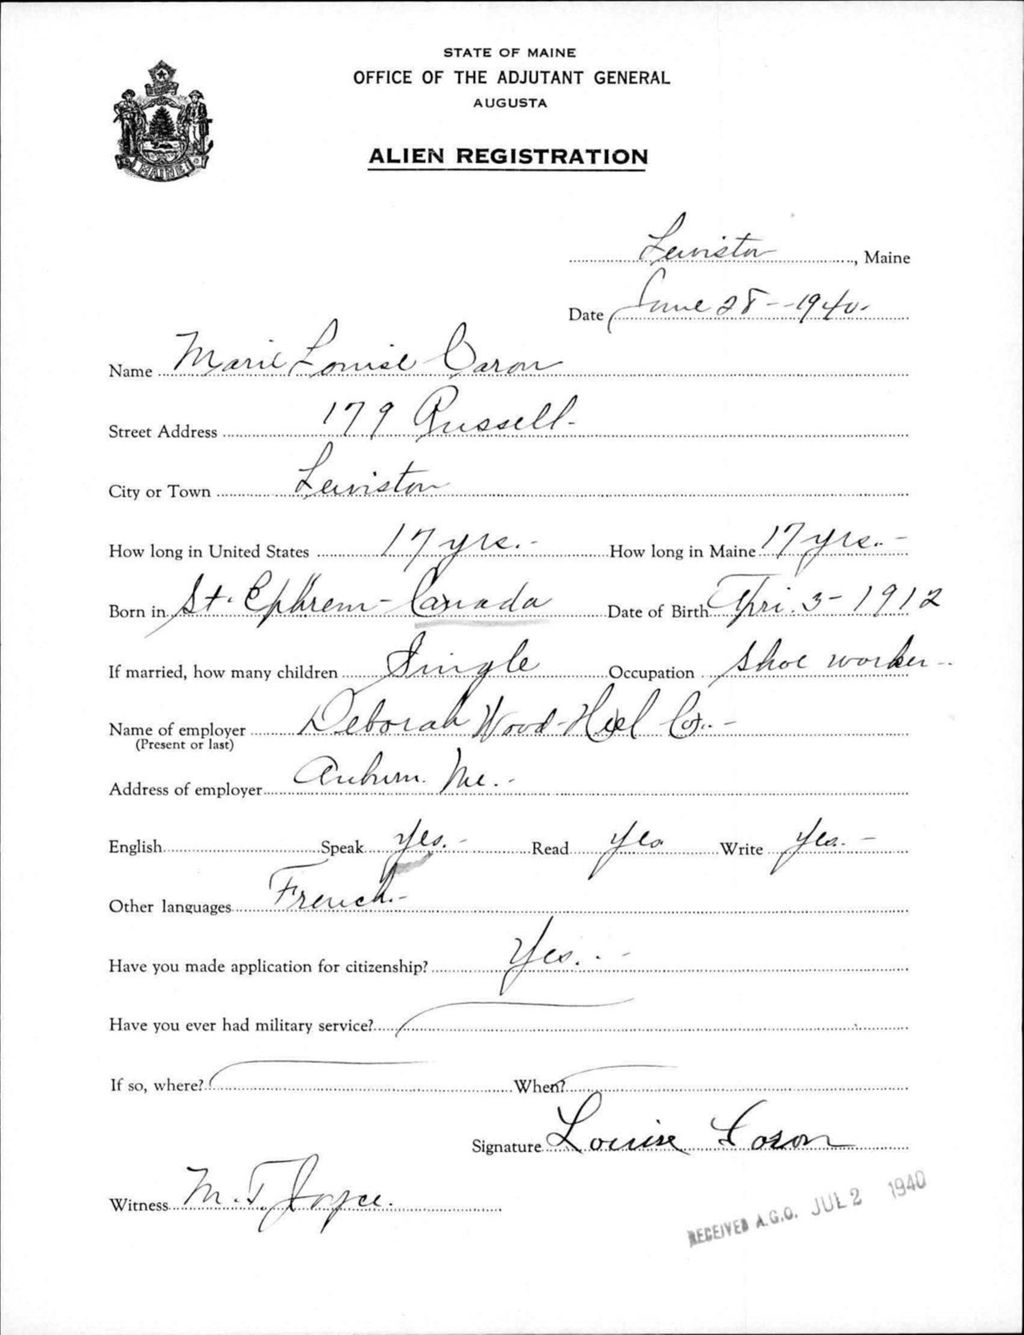 STATE OF MAINE
OFFICE OF THE ADJUTANT GENERAL
AUGUSTA
ALIEN REGISTRATION
MAINE
Lewiston, Maine
Date June 28 - 1940.
Name Marie Louise Caron
Street Address 179 Russell -
City or Town Lewiston
How long in United States 17 yrs. - How long in Maine 17 yrs. -
Born in St. Ephrem - Canada Date of Birth Apri. 3 - 1912
If married, how many children Single Occupation Shoe worker -
Name of employer Deborah Wood-Heel Co. -
(Present or last)
Address of employer Auburn. Me. -
English Speak Yes. - Read Yes Write Yes. -
Other languages French. -
Have you made application for citizenship? Yes. -
Have you ever had military service?
If so, where? When?
Signature Louise Caron
Witness M. T. Joyce.
RECEIVED A.G.O. JUL 2 1940